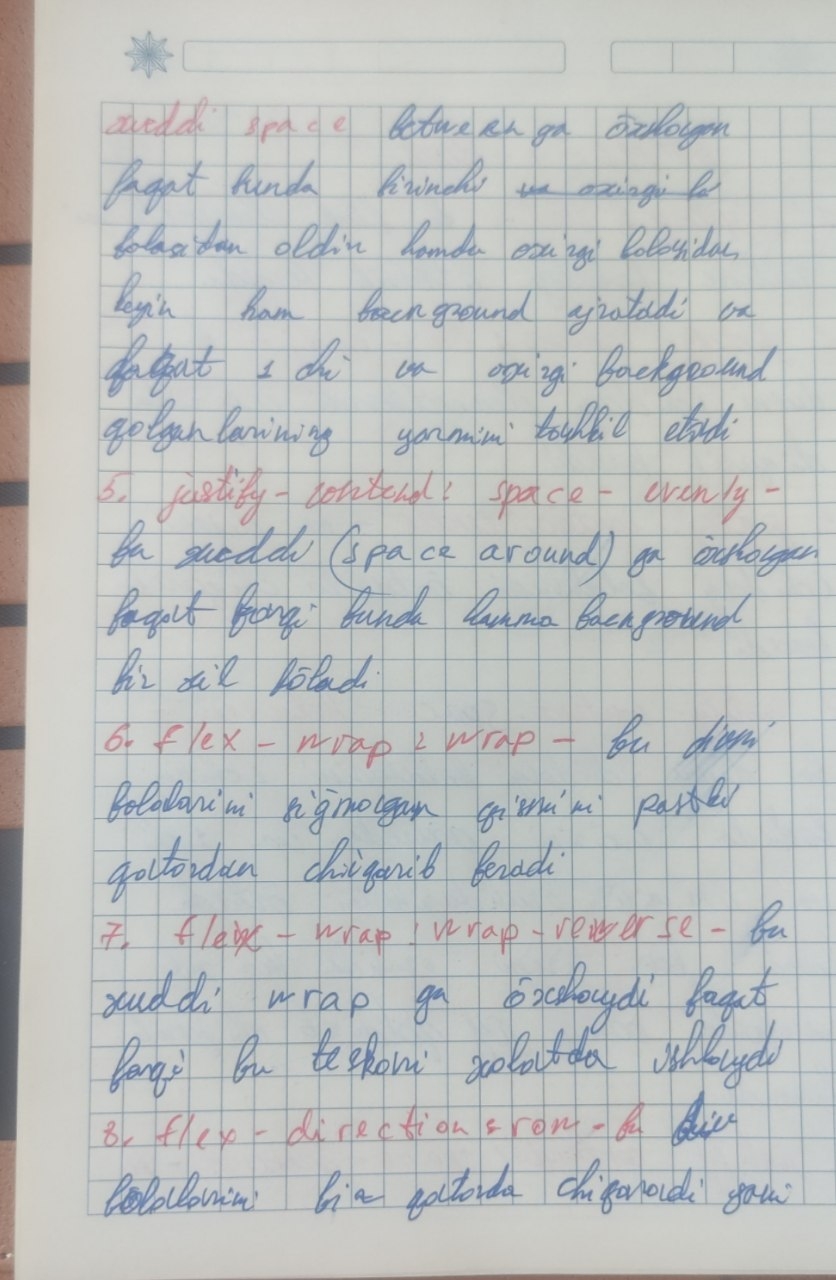 xuddi space between ga õxshagan
faqat bunda birinchi va oxirgi bo
bolasidan oldin hamda oxirgi bolasidan
keyin ham background ajratadi va
faqat 1 chi va oxirgi background
qolganlarining yarmini tashkil etadi
5. justify-contend: space-evenly-
bu xuddi (space around) ga õxshagan
faqat farqi bunda hamma background
bir xil bõladi
6. flex-wrap: wrap - bu divni
bolalarini siğmagan qismini pastki
qatordan chiqarib beradi
7. flex-wrap: wrap-reverse - bu
xuddi wrap ga õxshaydi faqat
farqi bu teskari xolatda ishlaydi
8. flex-direction: row - bu div
bolalarini bir qatorda chiqaradi yani